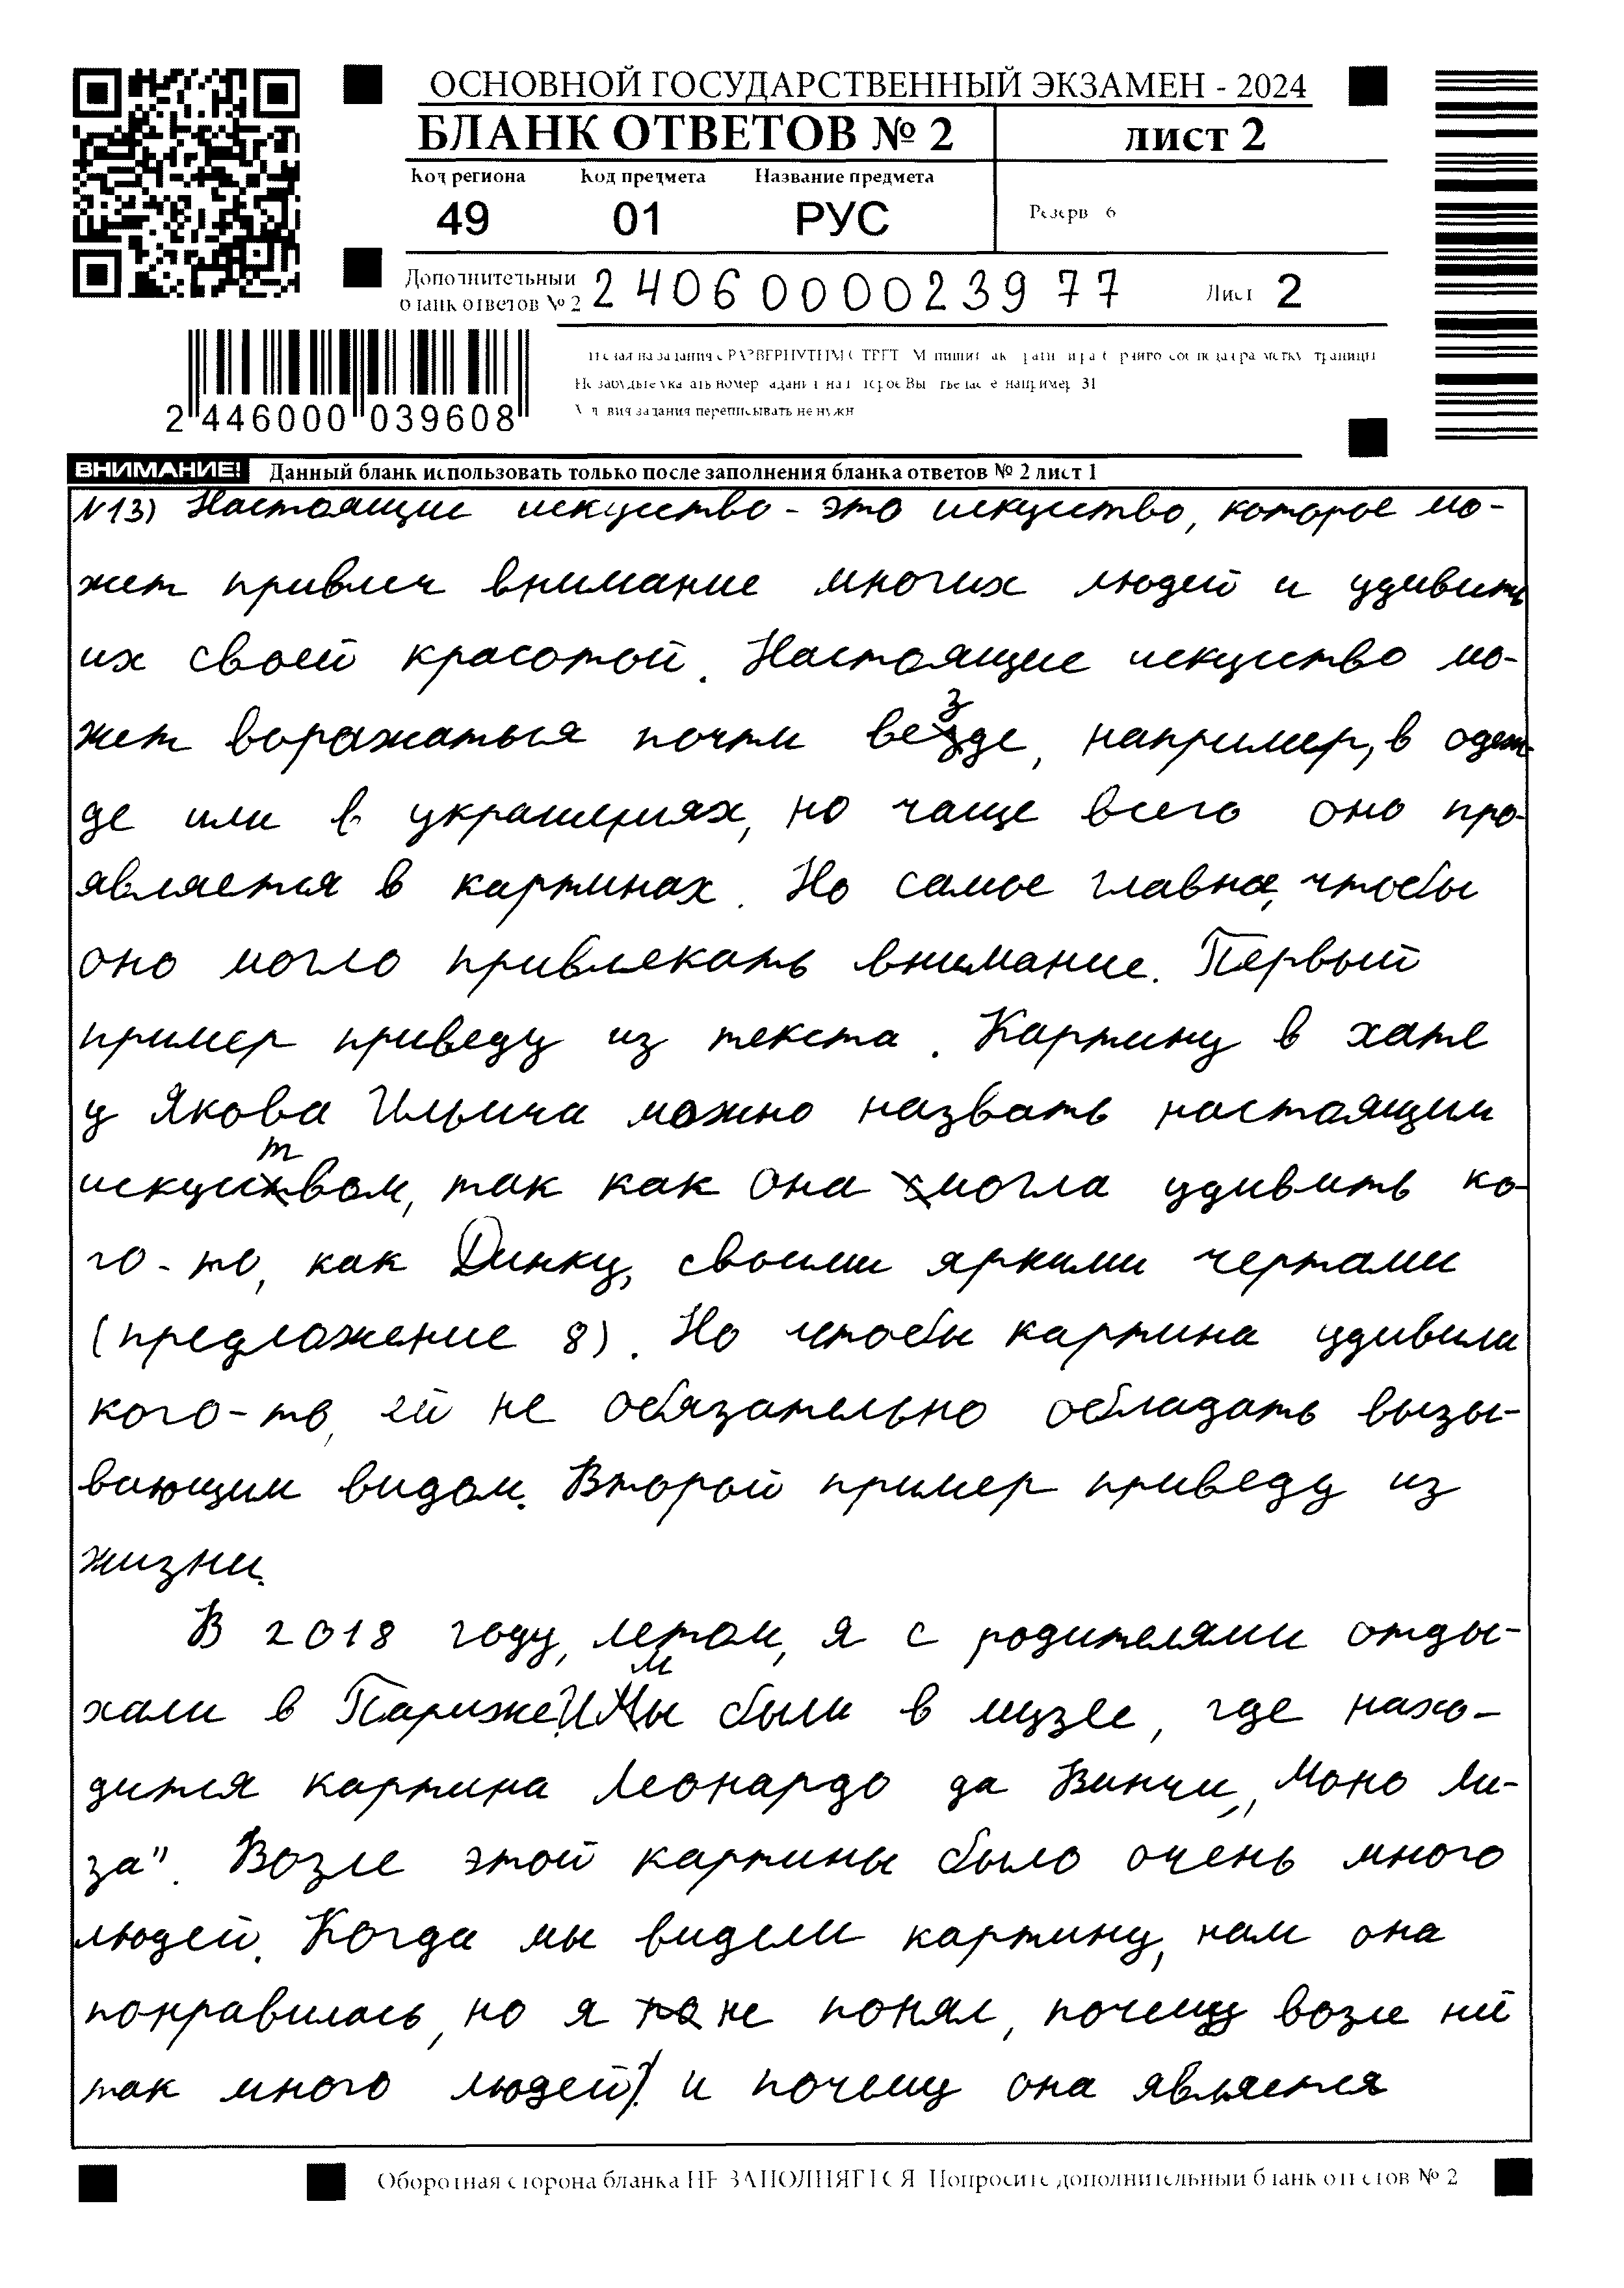 ОСНОВНОЙ ГОСУДАРСТВЕННЫЙ ЭКЗАМЕН - 2024
БЛАНК ОТВЕТОВ № 2 лист 2
Код региона Код предмета Название предмета
49 01 РУС Резерв 6
Дополнительный
бланк ответов № 2 2406000023977 Лист 2
2 446000 039608
переписывать не нужн
ВНИМАНИЕ! Данный бланк использовать только после заполнения бланка ответов № 2 лист 1
N13) Настоящие искуство - это искуство, которое мо-
жет привлеч внимание многих людей и удивить
их своей красотой. Настоящие искуство мо-
жет воражаться почти везде, например, в одеж-
де или в украшениях, но чаще всего оно про-
является в картинах. Но самое главное, чтобы
оно могло привлекать внимание. Первый
пример приведу из текста. Картину в хате
у Якова Ильича можно назвать настоящим
искуством, так как она могла удивить ко-
го-то, как Динку, своими яркими чертами
(предложение 8). Но чтобы картина удивила
кого-то, ей не обязательно обладать вызы-
вающим видом. Второй пример приведу из
жизни.
В 2018 году, летом, я с родителями отды-
хали в Париже. И мы были в музее, где нахо-
дится картина Леонардо да Винчи „Моно Ли-
за". Возле этой картины было очень много
людей. Когда мы видели картину, нам она
понравилась, но я не понял, почему возле ней
так много людей и почему она является
Оборотная сторона бланка НЕ ЗАПОЛНЯЕТСЯ Попросите дополнительный бланк ответов № 2